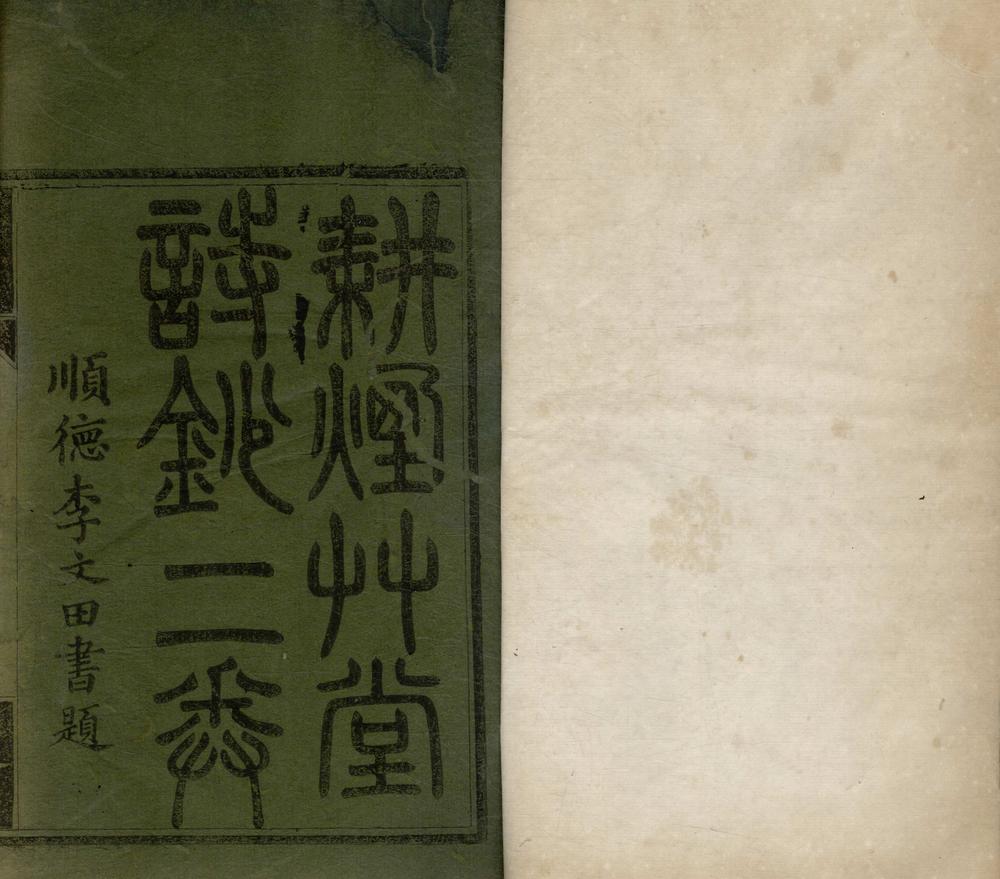 耕煙艸堂
詩鈔二卷
順德李文田書題